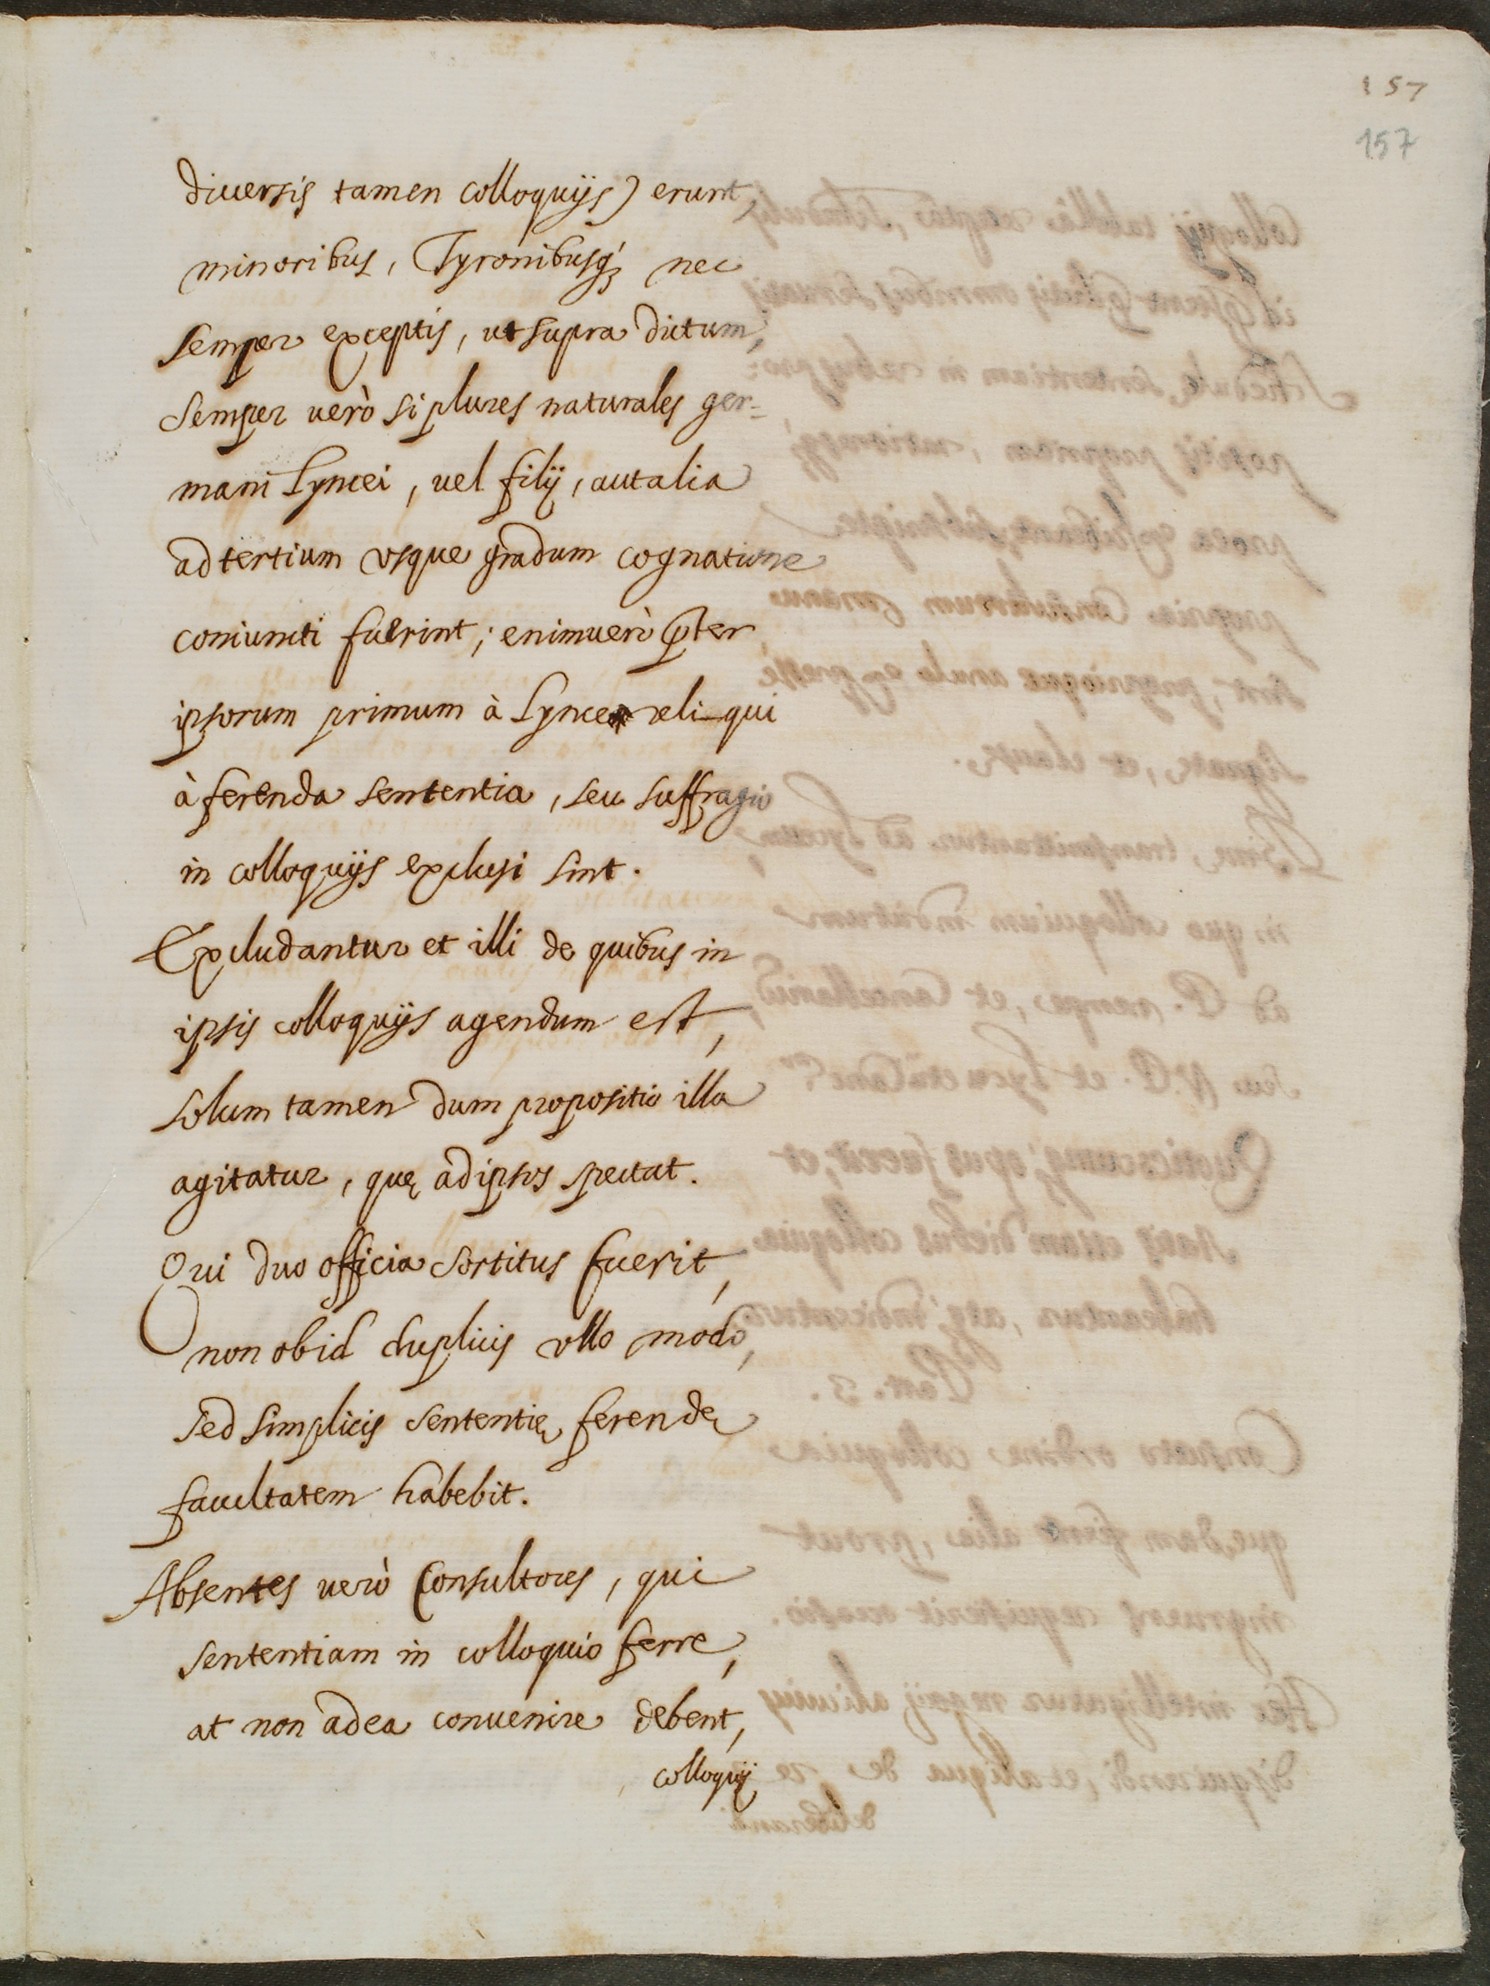 157
157
diuersis tamen colloquijs) erunt,
minoribus, Tyronibusq; nec
semper exceptis, ut supra dictum,
semper uerò si plures naturales ger=
mani Lyncei, uel filij, aut alia
ad tertium usque gradum cognatione
coniuncti fuerint; enimuerò p̃ter
ipsorum primum à Lynceo reliqui
à ferenda sententia, seu suffragio
in colloquijs exclusi sint.
Excludantur et illi de quibus in
ipsis colloquijs agendum est,
solum tamen dum propositio illa
agitatur, quę ad ipsos spectat.
Qui duo officia sortitus fuerit,
non ob id duplicis ullo modo,
sed simplicis sententię ferendę
facultatem habebit.
Absentes uerò Consultores, qui
sententiam in colloquio ferre,
at non ad ea conuenire debent,
colloquij